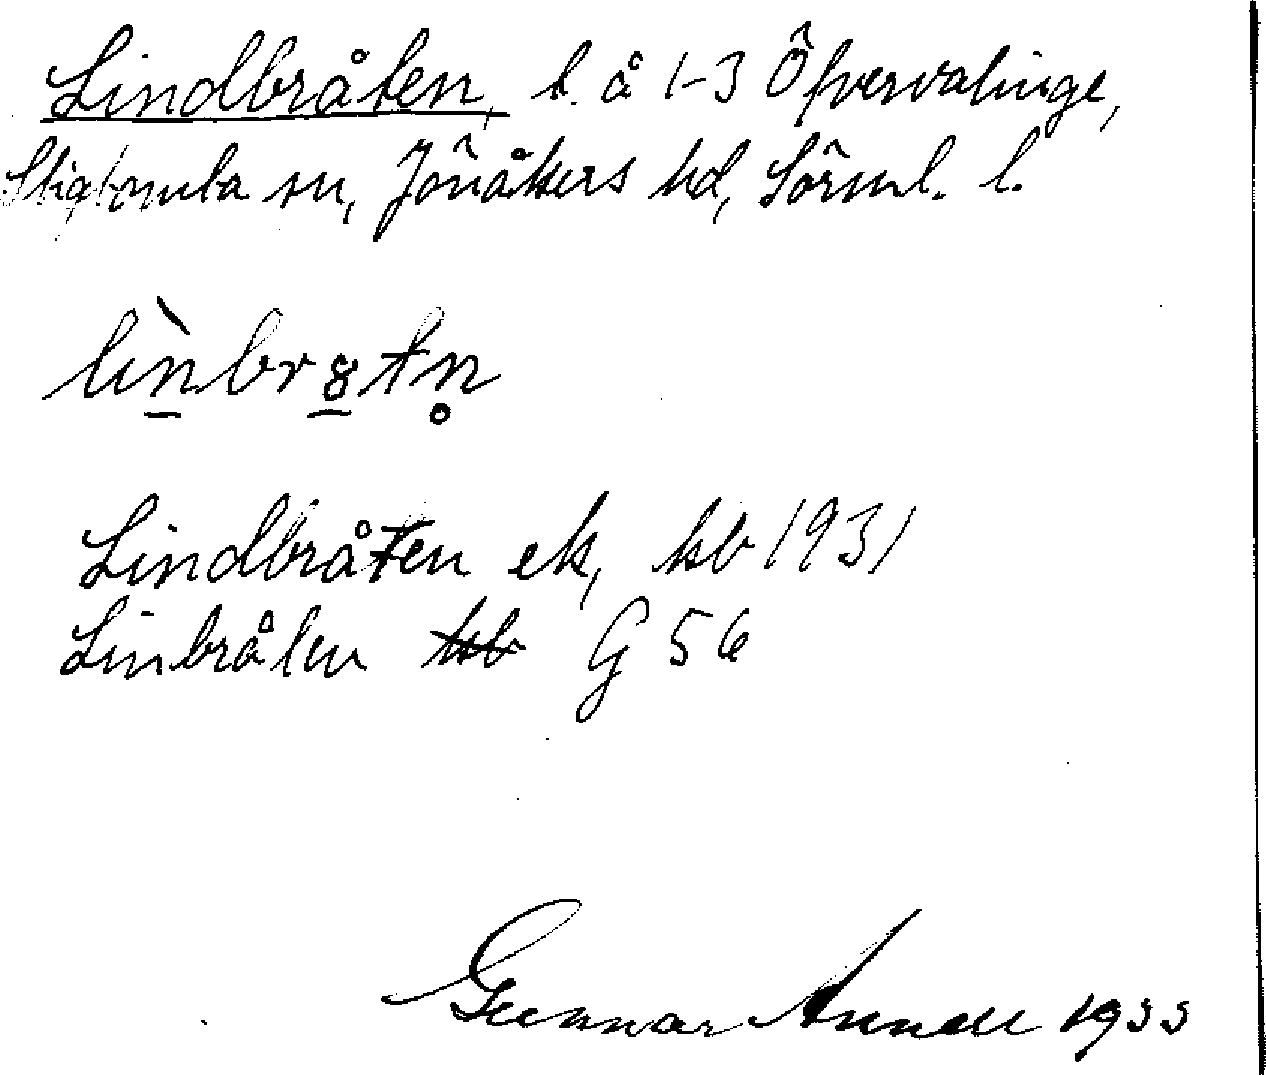 Lindbråten, t. å 1-3 Öfvervalinge,
Stigtomta sn, Jönåkers hd, Sörml. l.
lìnbr8tn̥
Lindbråten ek, kb 1931
Linbråten kb G 56
Gunnar Annell 1933